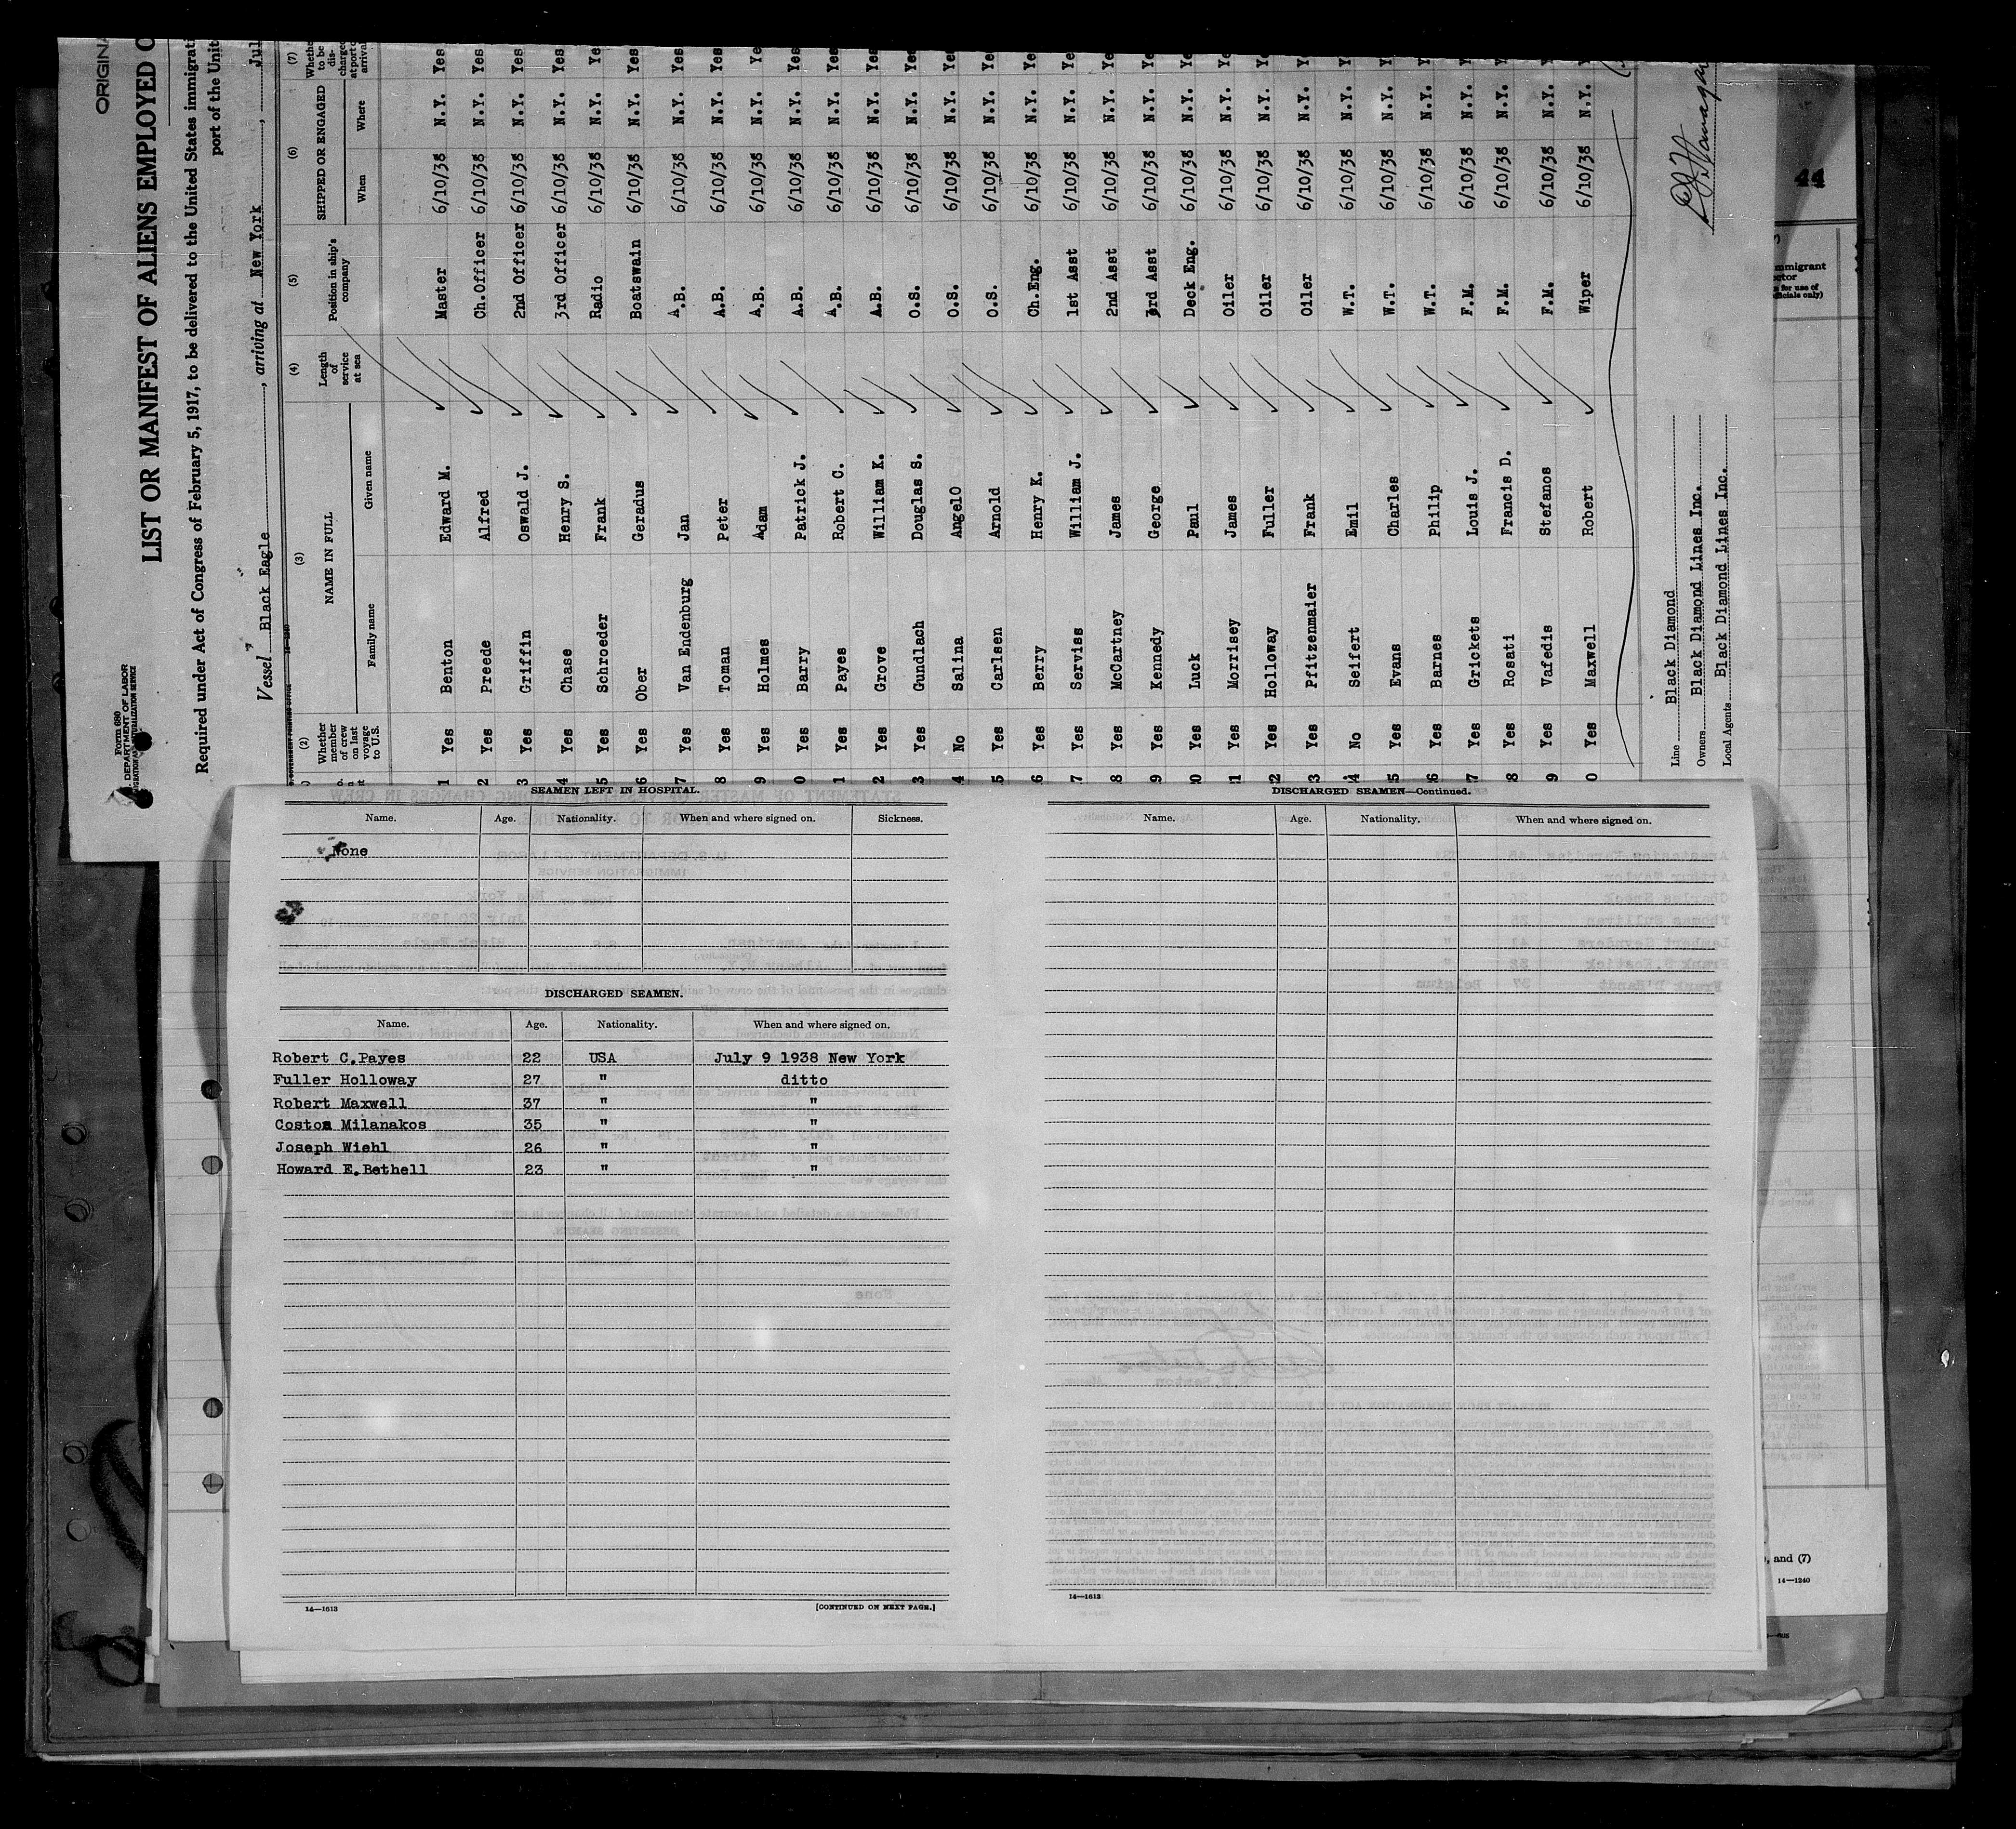 ORIGINA
Form 680
DEPARTMENT OF LABOR
LIST OR MANIFEST OF ALIENS EMPLOYED O
Required under Act of Congress of February 5, 1917, to be delivered to the United States immigrati
port of the Unit
Vessel Black Eagle, arriving at New York, Jul
(2) Whether member of crew on last voyage to U.S.
(3) NAME IN FULL
Family name Given name
(4) Length of service at sea
(5) Position in ship's company
(6) SHIPPED OR ENGAGED
When Where
(7) Whethe to be dis- charged at port o arrival
1 Yes Benton Edward M. Master 6/10/38 N.Y. Yes
2 Yes Preede Alfred Ch.Officer 6/10/38 N.Y. Yes
3 Yes Griffin Oswald J. 2nd Officer 6/10/38 N.Y. Yes
4 Yes Chase Henry S. 3rd Officer 6/10/38 N.Y. Yes
5 Yes Schroeder Frank Radio 6/10/38 N.Y. Ye
6 Yes Ober Geradus Boatswain 6/10/38 N.Y. Yes
7 Yes Van Endenburg Jan A.B. 6/10/38 N.Y. Yes
8 Yes Toman Peter A.B. 6/10/38 N.Y. Yes
9 Yes Holmes Adam A.B. 6/10/38 N.Y. Ye
0 Yes Barry Patrick J. A.B. 6/10/38 N.Y. Yes
1 Yes Payes Robert C. A.B. 6/10/38 N.Y. Yes
2 Yes Grove William K. A.B. 6/10/38 N.Y. Yes
3 Yes Gundlach Douglas S. O.S. 6/10/38 N.Y. Yes
4 No Salina AngelO O.S. 6/10/38 N.Y. Ye
5 Yes Carlsen Arnold O.S. 6/10/38 N.Y. Ye
6 Yes Berry Henry K. Ch.Eng. 6/10/38 N.Y. Ye
7 Yes Serviss William J. 1st Asst 6/10/38 N.Y. Ye
8 Yes McCartney James 2nd Asst 6/10/38 N.Y. Ye
9 Yes Kennedy George 3rd Asst 6/10/38 N.Y. Ye
0 Yes Luck Paul Deck Eng. 6/10/38 N.Y. Ye
1 Yes Morrisey James Oiler 6/10/38 N.Y. Ye
2 Yes Holloway Fuller Oiler 6/10/38 N.Y. Ye
3 Yes Pfitzenmaier Frank Oiler 6/10/38 N.Y. Ye
4 No Seifert Emil W.T. 6/10/38 N.Y. Y
5 Yes Evans Charles W.T. 6/10/38 N.Y. Y
6 Yes Barnes Philip W.T. 6/10/38 N.Y. Y
7 Yes Grickets Louis J. F.M. 6/10/38 N.Y. Y
8 Yes Rosati Francis D. F.M. 6/10/38 N.Y. Y
9 Yes Vafedis Stefanos F.M. 6/10/38 N.Y. Y
0 Yes Maxwell Robert Wiper 6/10/38 N.Y. Y
Line Black Diamond
Owners Black Diamond Lines Inc.
Local Agents Black Diamond Lines Inc.
44
mmigrant
for use of
only)
SEAMEN LEFT IN HOSPITAL.
Name. Age. Nationality. When and where signed on. Sickness.
None
DISCHARGED SEAMEN.
Name. Age. Nationality. When and where signed on.
Robert C.Payes 22 USA July 9 1938 New York
Fuller Holloway 27 " ditto
Robert Maxwell 37 " "
Costos Milanakos 35 " "
Joseph Wiehl 26 " "
Howard E.Bethell 23 " "
14—1613 [CONTINUED ON NEXT PAGE.]
DISCHARGED SEAMEN—Continued.
Name. Age. Nationality. When and where signed on.
14—1613
, and (7)
14—1240